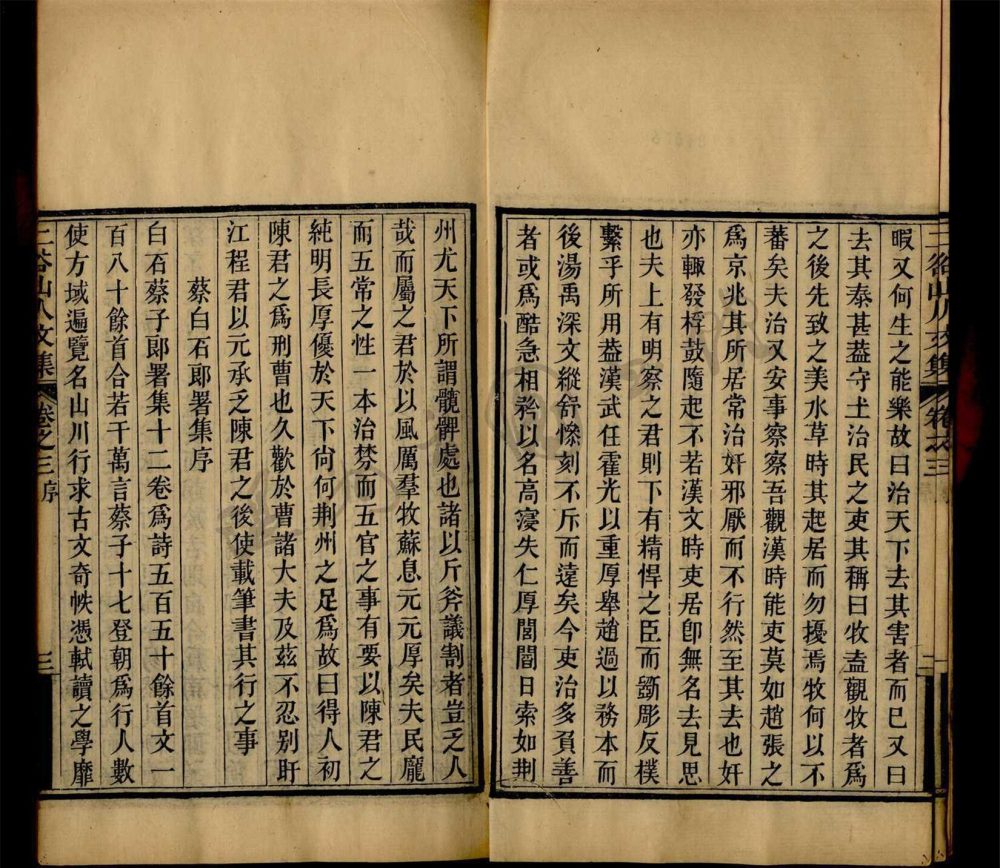 二谷山人文集 卷之三 序 二
暇又何生之能樂故曰治天下去其害者而已又曰
去其泰甚葢守土治民之吏其稱曰牧盍觀牧者爲
之後先致之美水草時其起居而勿擾焉牧何以不
蕃矣夫治又安事察察吾觀漢時能吏莫如趙張之
爲京兆其所居常治奸邪厭而不行然至其去也奸
亦輙發桴鼓隨起不若漢文時吏居卽無名去見思
也夫上有明察之君則下有精悍之臣而斵彫反樸
繫乎所用葢漢武任霍光以重厚舉趙過以務本而
後湯禹深文縱舒慘刻不斥而遠矣今吏治多負善
者或爲酷急相矜以名高寖失仁厚閭閻日索如荆
州尤天下所謂髖髀處也諸以斤斧議割者豈乏人
哉而屬之君於以風厲羣牧蘇息元元厚矣夫民龎
而五常之性一本治棼而五官之事有要以陳君之
純明長厚優於天下尙何荆州之足爲故曰得人初
陳君之爲刑曹也久歡於曹諸大夫及茲不忍别盱
江程君以元承乏陳君之後使載筆書其行之事
蔡白石郎署集序
白石蔡子郎署集十二卷爲詩五百五十餘首文一
百八十餘首合若干萬言蔡子十七登朝爲行人數
使方域遍覽名山川行求古文奇帙憑軾讀之學靡
二谷山人文集 卷之三 序 三